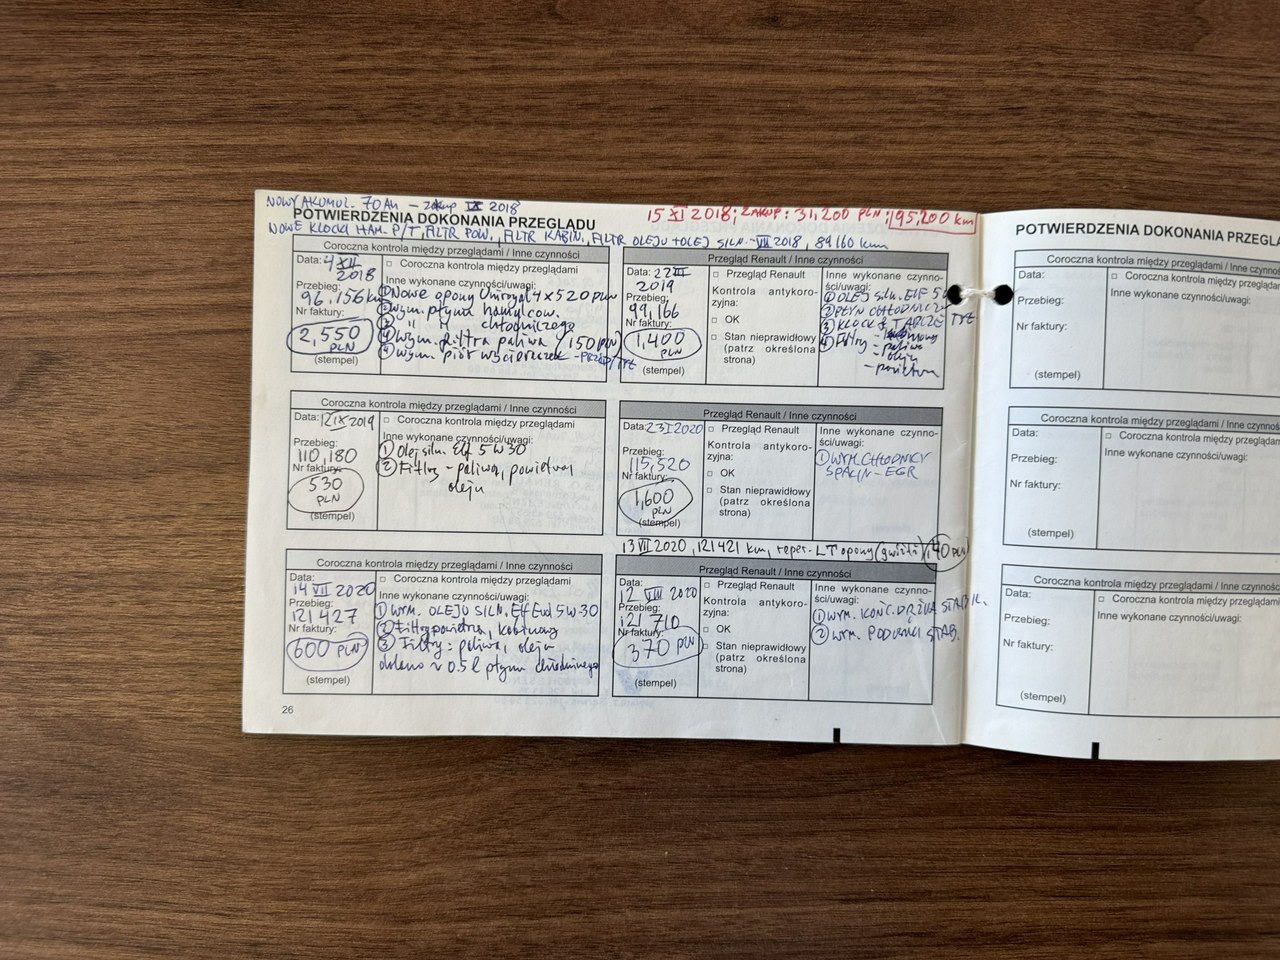 NOWY AKUMUL. 70Ah - zakup IX 2018
15 XI 2018; ZAKUP: 31,200 PLN; 95,200 km
POTWIERDZENIA DOKONANIA PRZEGLĄDU
NOWE KLOCKI HAM. P/T, FILTR POW., FILTR KABIN., FILTR OLEJU + OLEJ SILN. - VII 2018, 89160 km
Coroczna kontrola między przeglądami / Inne czynności
Data: 4 XII 2018
Przebieg:
96.156 km
Nr faktury:
2,550 PLN
(stempel)
□ Coroczna kontrola między przeglądami
Inne wykonane czynności/uwagi:
① Nowe opony Uniroyal 4 x 520 PLN
② Wym. płynu hamulcow.
③ " " chłodniczego
④ Wym. filtra paliwa (150 PLN)
wym. piór wycieraczek - PRZÓD/TYŁ
Przegląd Renault / Inne czynności
Data: 22 III 2019
Przebieg:
99,166
Nr faktury:
1,400 PLN
(stempel)
□ Przegląd Renault
Kontrola antykoro-
zyjna:
□ OK
□ Stan nieprawidłowy
(patrz określona
strona)
Inne wykonane czynno-
ści/uwagi:
① OLEJ siln. Elf 5W
② PŁYN CHŁODNICZ
③ KLOCKI, TARCZE TYŁ
④ Filtry -
- paliwa
oleju
- powietrza
Coroczna kontrola między przeglądami / Inne czynności
Data: 12 IX 2019
Przebieg:
110,180
Nr faktury:
530 PLN
(stempel)
□ Coroczna kontrola między przeglądami
Inne wykonane czynności/uwagi:
① Olej siln. Elf 5W30
② Filtry - paliwa, powietrza,
oleju
Przegląd Renault / Inne czynności
Data: 23 I 2020
Przebieg:
115,520
Nr faktury:
1,600 PLN
(stempel)
□ Przegląd Renault
Kontrola antykoro-
zyjna:
□ OK
□ Stan nieprawidłowy
(patrz określona
strona)
Inne wykonane czynno-
ści/uwagi:
① WYM. CHŁODNICY
SPALIN - EGR
13 VII 2020, 121421 km, reper. LT opony (gwóźdź) 140 PLN
Coroczna kontrola między przeglądami / Inne czynności
Data:
14 VII 2020
Przebieg:
121427
Nr faktury:
600 PLN
(stempel)
□ Coroczna kontrola między przeglądami
Inne wykonane czynności/uwagi:
① WYM. OLEJU SILN. Elf Evol 5W30
② Filtry powietrza, kabinowy
③ Filtry: paliwa, oleju
dolano ~ 0.5 l płynu chłodniczego
Przegląd Renault / Inne czynności
Data:
12 VIII 2020
Przebieg:
121710
Nr faktury:
370 PLN
(stempel)
□ Przegląd Renault
Kontrola antykoro-
zyjna:
□ OK
□ Stan nieprawidłowy
(patrz określona
strona)
Inne wykonane czynno-
ści/uwagi:
① WYM. KOŃC. DRĄŻKA STABIL.
② WYM. PODUSZKI STAB.
26
POTWIERDZENIA DOKONANIA PRZEGLĄ
Coroczna kontrola między przegląda
Data:
Przebieg:
Nr faktury:
(stempel)
□ Coroczna kontrola między
Inne wykonane czynności/uwagi:
Coroczna kontrola między przeglądami
Data:
Przebieg:
Nr faktury:
(stempel)
□ Coroczna kontrola między p
Inne wykonane czynności/uwagi:
Coroczna kontrola między przeglądami
Data:
Przebieg:
Nr faktury:
(stempel)
□ Coroczna kontrola między
Inne wykonane czynności/uwagi: